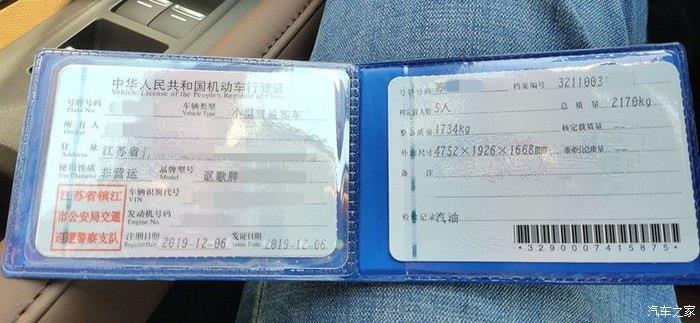 中华人民共和国机动车行驶证
Vehicle License of the People's Republic of China
号牌号码
Plate No.
车辆类型
Vehicle Type
小型普通客车
所有人
Owner
住 址
Address
江苏省
使用性质
Use Character
非营运
品牌型号
Model
讴歌牌
车辆识别代号
VIN
发动机号码
Engine No.
注册日期
Register Date
2019-12-06
发证日期
Issue Date
2019-12-06
江苏省镇江
市公安局交通
巡逻警察支队
号牌号码 苏
档案编号 3211003
核定载人数 5人
总 质 量 2170kg
整备质量 1734kg
核定载质量
外廓尺寸 4752×1926×1668mm
准牵引总质量
备 注
检验记录 汽油
*3290007415875*
汽车之家